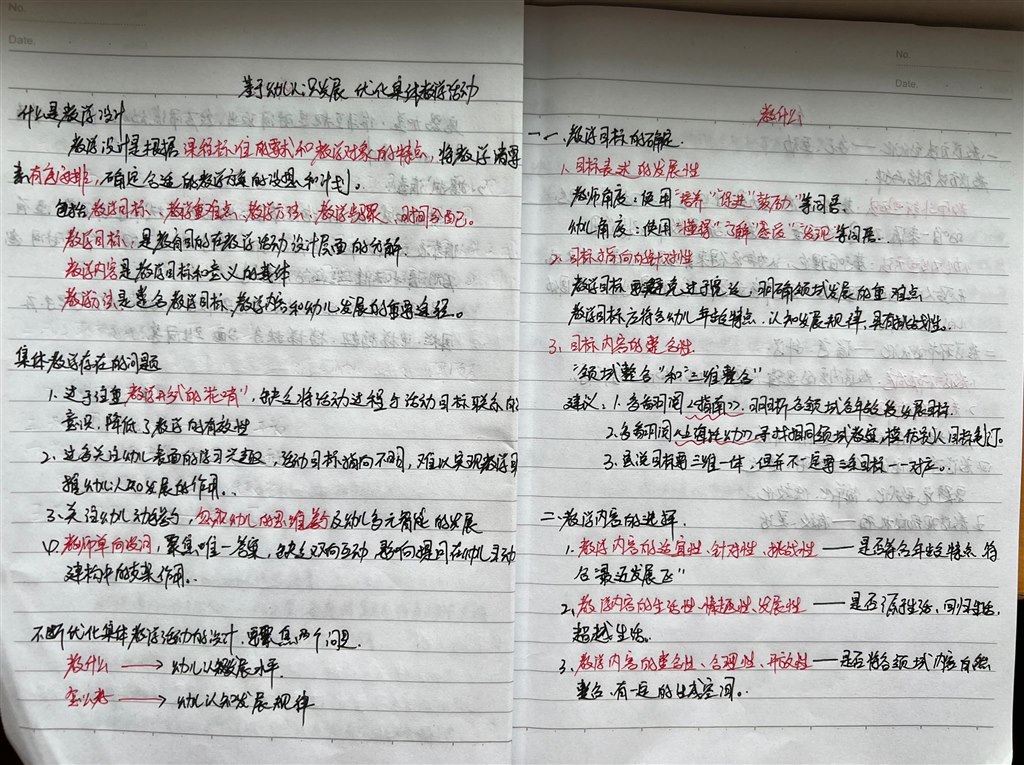 No.
Date.
基于幼儿认知发展 优化集体教学活动
什么是教学设计
教学设计是根据课程标准的要求和教学对象的特点，将教学诸要
素有序安排，确定合适的教学方案的设想和计划。
包括教学目标、教学重难点、教学方法、教学步骤、时间分配。
教学目标，是教育目的在教学活动设计层面的分解.
教学内容是教学目标和意义的载体
教学方法是整合教学目标、教学内容和幼儿发展的重要途径。
集体教学存在的问题
1、过于注重"教学形式的花哨"，缺乏将活动过程与活动目标联系的
意识，降低了教学的有效性
2、过多关注幼儿表面的学习兴趣，活动目标指向不明，难以实现教学目
推幼儿认知发展的作用。
3、关注幼儿动的参与，忽视幼儿的思维参与及幼儿多元智能的发展
4、教师单向发问，聚焦唯一答案，缺乏双向互动 影响提问在幼儿主动
建构中的支架作用。
不断优化集体教学活动的设计，要聚焦两个问题.
教什么 → 幼儿认知发展水平.
怎么教 → 幼儿认知发展规律
No.
Date.
教什么
一、教学目标的确定.
1、目标表述的发展性
教师角度：使用"培养""促进""鼓励"等词语.
幼儿角度：使用"懂得""了解""感受""发现"等词语.
2、目标方向的针对性
教学目标要避免过于宽泛，明确领域发展的重难点
教学目标应符合幼儿年龄特点、认知发展规律，具有挑战性。
3、目标内容的整合性.
"领域整合"和"三维整合"
建议：1、多翻阅《指南》，明晰各领域各年龄段发展目标.
2、多翻阅《上海托幼》，寻找相同领域教案，模仿别人目标制订。
3、虽说目标要三维一体，但并不一定要三条目标一一对应。
二、教学内容的选择.
1、教学内容的适宜性、针对性、挑战性——是否符合年龄特点 符
合"最近发展区"
2、教学内容的生活性、情趣性、发展性——是否源于生活、回归生活，
超越生活。
3、教学内容的整合性、合理性、开放性——是否将各领域内容自然
整合，有一定的生成空间。